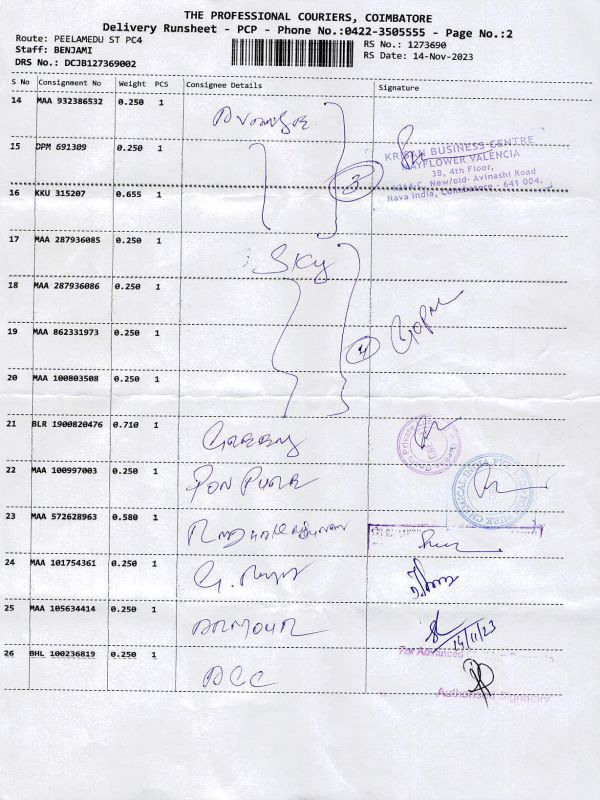 THE PROFESSIONAL COURIERS, COIMBATORE
Delivery Runsheet - PCP - Phone No.:0422-3505555 - Page No.:2
Route: PEELAMEDU ST PC4
Staff: BENJAMI
DRS No.: DCJB127369002
RS No.: 1273690
RS Date: 14-Nov-2023
S No Consignment No Weight PCS Consignee Details Signature
14 MAA 932386532 0.250 1
15 DPM 691309 0.250 1
KRISAN BUSINESS CENTRE
MAYFLOWER VALENCIA
3B, 4th Floor,
New/old- Avinashi Road
Nava India, Coimbatore - 641 004.
3
16 KKU 315207 0.655 1
17 MAA 287936085 0.250 1
Sky
18 MAA 287936086 0.250 1
19 MAA 862331973 0.250 1
4
20 MAA 100803508 0.250 1
21 BLR 1900820476 0.710 1
22 MAA 100997003 0.250 1 PON PURE
23 MAA 572628963 0.580 1
24 MAA 101754361 0.250 1
25 MAA 105634414 0.250 1 ARMOUR
14/11/23
For Advanced
26 BHL 100236819 0.250 1 ACC
Authorised Signatory